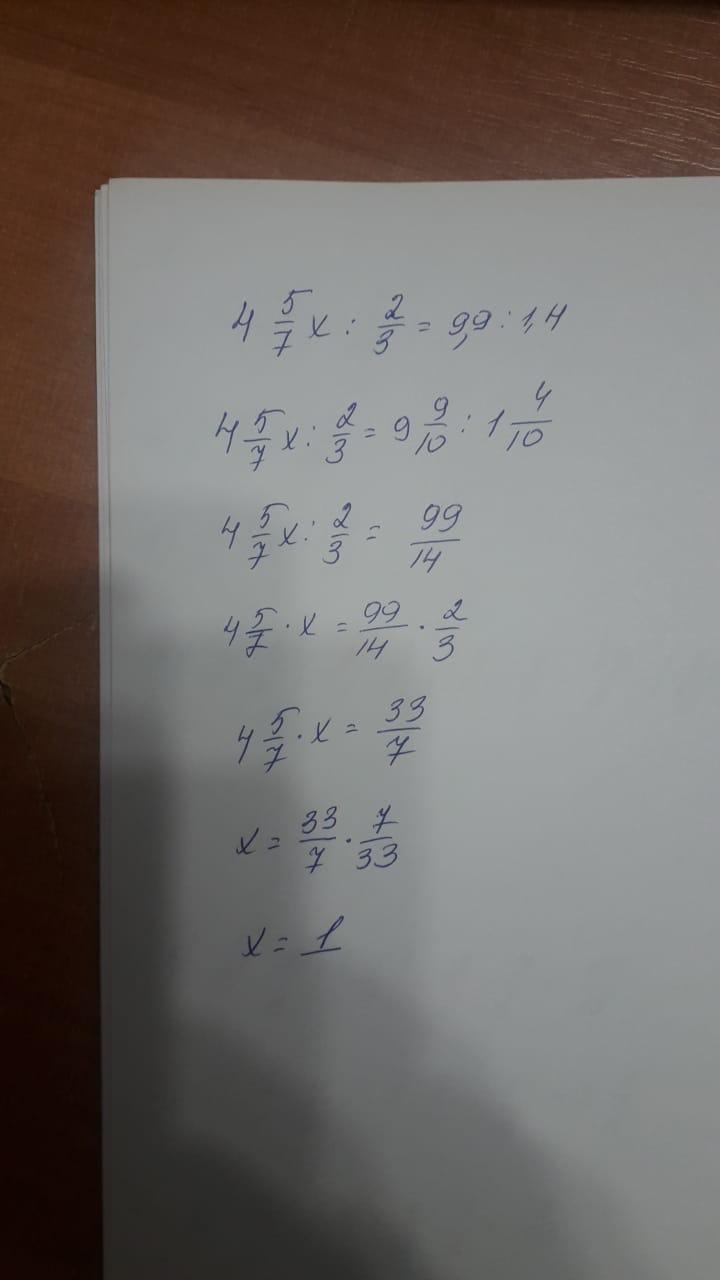 4 5/7 x : 2/3 = 9,9 : 1,4
4 5/7 x : 2/3 = 9 9/10 : 1 4/10
4 5/7 x : 2/3 = 99/14
4 5/7 · x = 99/14 · 2/3
4 5/7 · x = 33/7
x = 33/7 · 7/33
x = 1